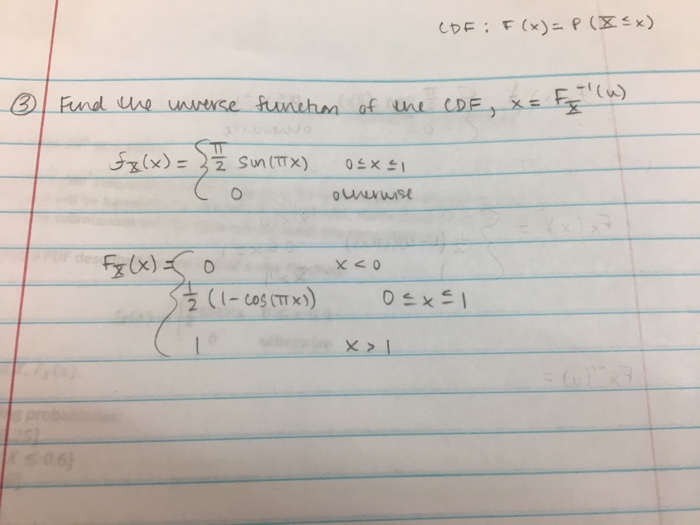 CDF: F(x) = P(X ≤ x)
③ Find the inverse function of the CDF, x = F_X^{-1}(u)
f_X(x) = { π/2 sin(πx) 0 ≤ x ≤ 1
0 otherwise
F_X(x) = { 0 x < 0
1/2 (1 - cos(πx)) 0 ≤ x ≤ 1
1 x > 1